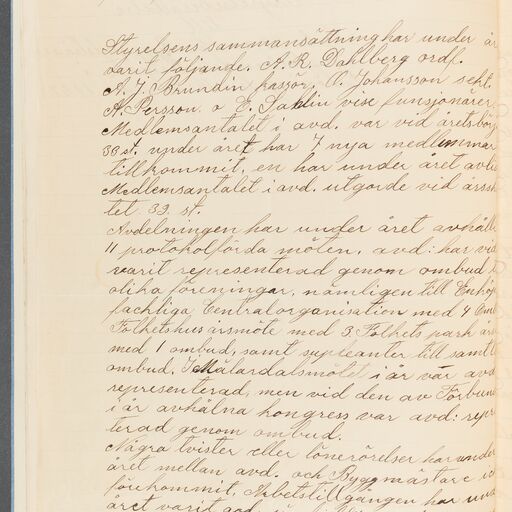 Styrelsens sammansättning har under år
varit följande. A. R. Dahlberg ordf.
A. J. Brundin kassör, O. Johansson sekt.
A. Persson o E. Sahlin vise funsjonärer
Medlemsantalet i avd. var vid årets bör
33 st. under året har 7 nya medlemmar
tillkommit, en har under året avli
Medlemsantalet i avd. utgorde vid årssl
tet 39 st.
Avdelningen har under året avhålli
11 protokolförda möten. avd: har vid
varit representerad genom ombud i
olika föreningar, nämligen till Enköp
fachliga Centralorganisation med 4 Omb
Folketshus årsmöte med 3. Folkets park års
med 1 ombud, samt supleanter till samtl
ombud. I Mälardalsmötet i år var avd
representerad, men vid den av Förbund
i år avhålna kongress var avd: repre
terad genom ombud.
Några tvister eller lonerörelser har under
året mellan avd. och Byggmästare ic
förekommit. Arbetstillgången har und
året varit god